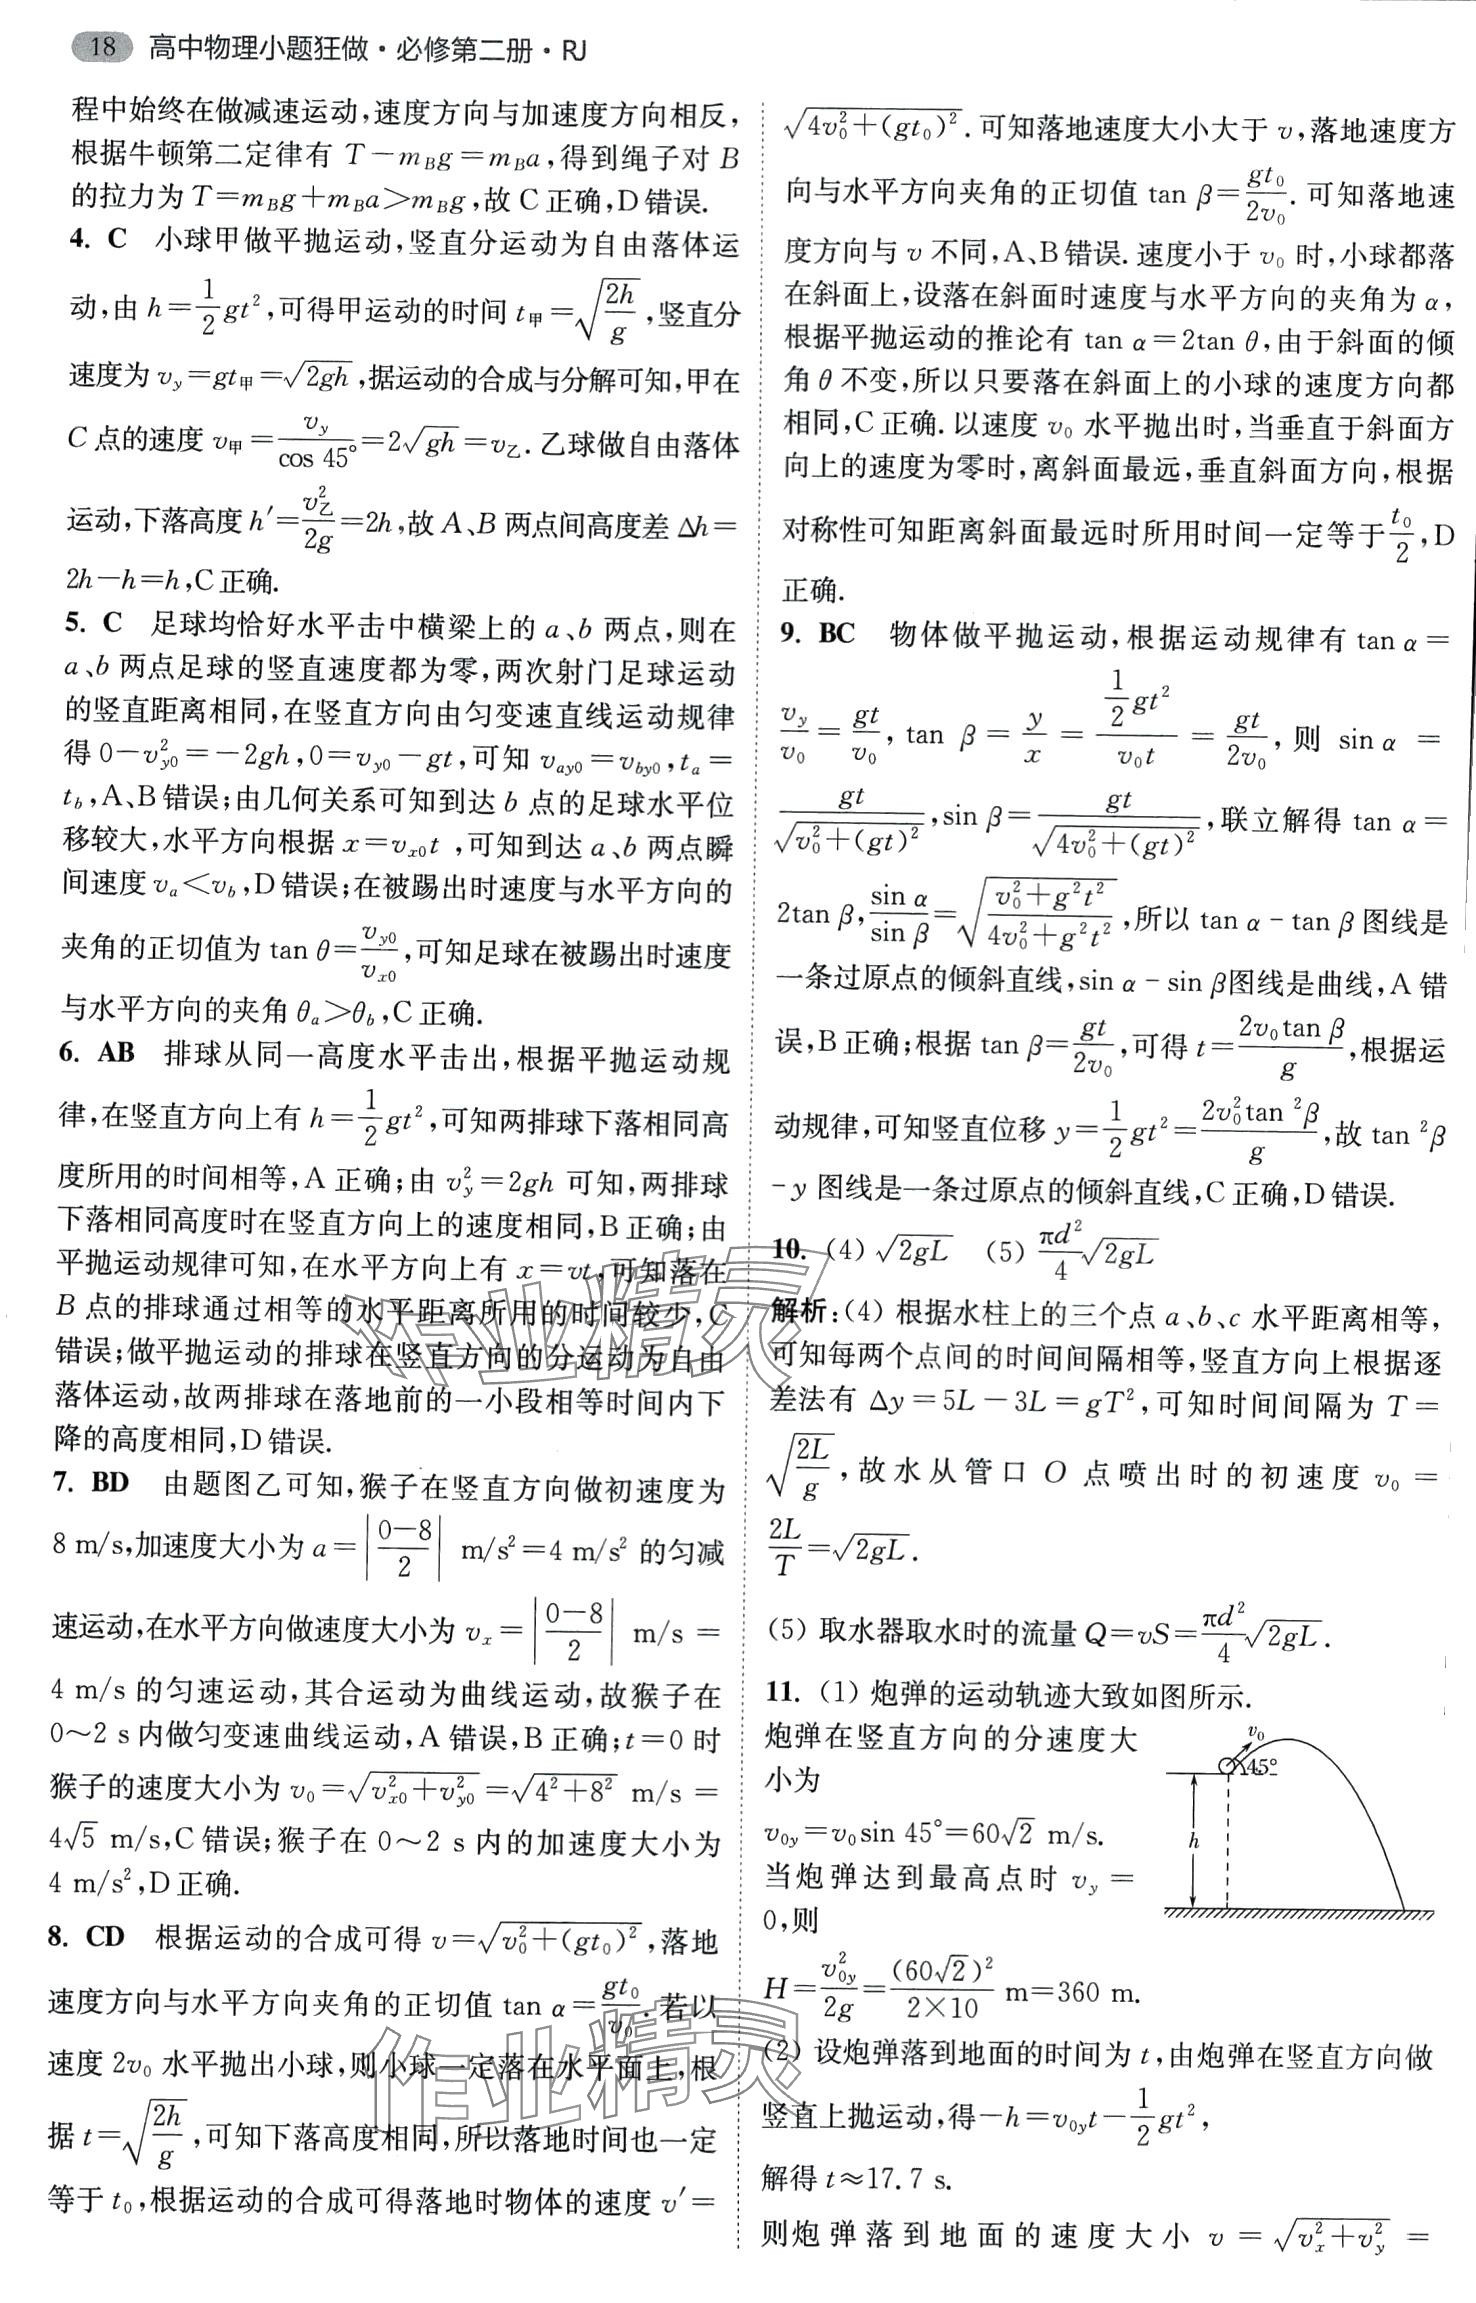 18 高中物理小题狂做·必修第二册·RJ
程中始终在做减速运动,速度方向与加速度方向相反,
根据牛顿第二定律有 T－m_Bg＝m_Ba,得到绳子对 B
的拉力为 T＝m_Bg＋m_Ba＞m_Bg,故 C 正确,D 错误.
4. C 小球甲做平抛运动,竖直分运动为自由落体运
动,由 h＝\frac{1}{2}gt²,可得甲运动的时间 t_甲＝\sqrt{\frac{2h}{g}},竖直分
速度为 v_y＝gt_甲＝\sqrt{2gh},据运动的合成与分解可知,甲在
C 点的速度 v_甲＝\frac{v_y}{cos 45°}＝2\sqrt{gh}＝v_乙.乙球做自由落体
运动,下落高度 h′＝\frac{v_乙^2}{2g}＝2h,故 A、B 两点间高度差 Δh＝
2h－h＝h,C 正确.
5. C 足球均恰好水平击中横梁上的 a、b 两点,则在
a、b 两点足球的竖直速度都为零,两次射门足球运动
的竖直距离相同,在竖直方向由匀变速直线运动规律
得 0－v_{y0}^2＝－2gh,0＝v_{y0}－gt,可知 v_{ay0}＝v_{by0},t_a＝
t_b,A、B 错误;由几何关系可知到达 b 点的足球水平位
移较大,水平方向根据 x＝v_{x0}t ,可知到达 a、b 两点瞬
间速度 v_a＜v_b,D 错误;在被踢出时速度与水平方向的
夹角的正切值为 tan θ＝\frac{v_{y0}}{v_{x0}},可知足球在被踢出时速度
与水平方向的夹角 θ_a＞θ_b,C 正确.
6. AB 排球从同一高度水平击出,根据平抛运动规
律,在竖直方向上有 h＝\frac{1}{2}gt²,可知两排球下落相同高
度所用的时间相等,A 正确;由 v_y^2＝2gh 可知,两排球
下落相同高度时在竖直方向上的速度相同,B 正确;由
平抛运动规律可知,在水平方向上有 x＝vt,可知落在
B 点的排球通过相等的水平距离所用的时间较少,C
错误;做平抛运动的排球在竖直方向的分运动为自由
落体运动,故两排球在落地前的一小段相等时间内下
降的高度相同,D 错误.
7. BD 由题图乙可知,猴子在竖直方向做初速度为
8 m/s,加速度大小为 a＝|\frac{0－8}{2}| m/s²＝4 m/s² 的匀减
速运动,在水平方向做速度大小为 v_x＝|\frac{0－8}{2}| m/s＝
4 m/s 的匀速运动,其合运动为曲线运动,故猴子在
0～2 s 内做匀变速曲线运动,A 错误,B 正确;t＝0 时
猴子的速度大小为 v_0＝\sqrt{v_{x0}^2＋v_{y0}^2}＝\sqrt{4²＋8²} m/s＝
4\sqrt{5} m/s,C 错误;猴子在 0～2 s 内的加速度大小为
4 m/s²,D 正确.
8. CD 根据运动的合成可得 v＝\sqrt{v_0^2＋(gt_0)²},落地
速度方向与水平方向夹角的正切值 tan α＝\frac{gt_0}{v_0}.若以
速度 2v_0 水平抛出小球,则小球一定落在水平面上,根
据 t＝\sqrt{\frac{2h}{g}},可知下落高度相同,所以落地时间也一定
等于 t_0,根据运动的合成可得落地时物体的速度 v′＝
\sqrt{4v_0^2＋(gt_0)²}.可知落地速度大小大于 v,落地速度方
向与水平方向夹角的正切值 tan β＝\frac{gt_0}{2v_0}.可知落地速
度方向与 v 不同,A、B 错误.速度小于 v_0 时,小球都落
在斜面上,设落在斜面时速度与水平方向的夹角为 α,
根据平抛运动的推论有 tan α＝2tan θ,由于斜面的倾
角 θ 不变,所以只要落在斜面上的小球的速度方向都
相同,C 正确.以速度 v_0 水平抛出时,当垂直于斜面方
向上的速度为零时,离斜面最远,垂直斜面方向,根据
对称性可知距离斜面最远时所用时间一定等于\frac{t_0}{2},D
正确.
9. BC 物体做平抛运动,根据运动规律有 tan α＝
\frac{v_y}{v_0}＝\frac{gt}{v_0}, tan β＝\frac{y}{x}＝\frac{\frac{1}{2}gt²}{v_0t}＝\frac{gt}{2v_0},则 sin α＝
\frac{gt}{\sqrt{v_0^2＋(gt)²}},sin β＝\frac{gt}{\sqrt{4v_0^2＋(gt)²}},联立解得 tan α＝
2tan β,\frac{sin α}{sin β}＝\sqrt{\frac{v_0^2＋g²t²}{4v_0^2＋g²t²}},所以 tan α－tan β 图线是
一条过原点的倾斜直线,sin α－sin β图线是曲线,A 错
误,B 正确;根据 tan β＝\frac{gt}{2v_0},可得 t＝\frac{2v_0tan β}{g},根据运
动规律,可知竖直位移 y＝\frac{1}{2}gt²＝\frac{2v_0^2tan ²β}{g},故 tan ²β
－y 图线是一条过原点的倾斜直线,C 正确,D 错误.
10. (4) \sqrt{2gL} (5) \frac{πd²}{4}\sqrt{2gL}
解析:(4) 根据水柱上的三个点 a、b、c 水平距离相等,
可知每两个点间的时间间隔相等,竖直方向上根据逐
差法有 Δy＝5L－3L＝gT²,可知时间间隔为 T＝
\sqrt{\frac{2L}{g}},故水从管口 O 点喷出时的初速度 v_0＝
\frac{2L}{T}＝\sqrt{2gL}.
(5) 取水器取水时的流量 Q＝vS＝\frac{πd²}{4}\sqrt{2gL}.
11. (1) 炮弹的运动轨迹大致如图所示.
炮弹在竖直方向的分速度大
小为
v_{0y}＝v_0sin 45°＝60\sqrt{2} m/s.
当炮弹达到最高点时 v_y＝
0,则
v_0
45°
h
H＝\frac{v_{0y}^2}{2g}＝\frac{(60\sqrt{2})²}{2×10} m＝360 m.
(2) 设炮弹落到地面的时间为 t,由炮弹在竖直方向做
竖直上抛运动,得－h＝v_{0y}t－\frac{1}{2}gt²,
解得 t≈17.7 s.
则炮弹落到地面的速度大小 v＝\sqrt{v_x^2＋v_y^2}＝
作业精灵
作业精灵